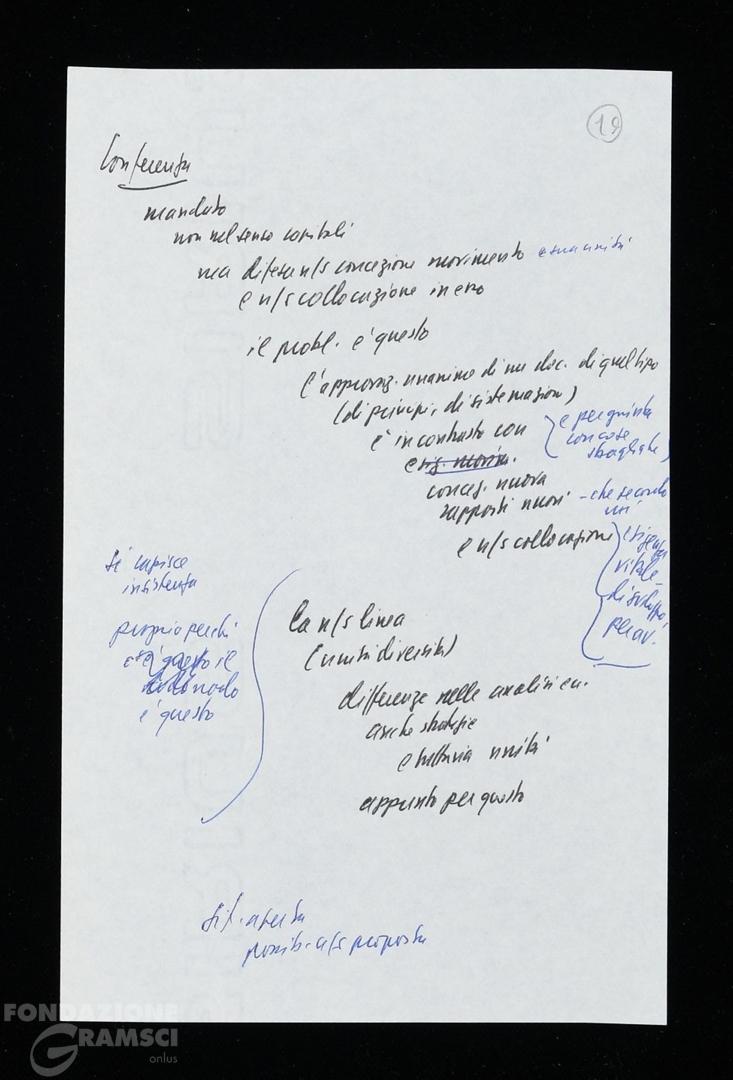 19
Conferenza
mandato
non nel senso
ma difesa n/s concezione movimento e sua unità
e n/s collocazione in esso
il probl. è questo
l'approvaz. unanime di un doc. di quel tipo
(di principi, di sistemazion)
è in contrasto con
esig. movim.
e per giunta
con cose
sbagliate
concez. nuova
rapporti nuovi - che secondo
noi
e n/s collocazione
esigenza
vitale
di sviluppo
per av.
si capisce
insistenza
proprio perché
è questo il
nodo
è questo
la n/s linea
(unità diversità)
differenze nelle analisi ecc.
anche strategie
e tuttavia unità
appunto per questo
sit. aperta
possib. n/s proposta
FONDAZIONE
GRAMSCI
onlus